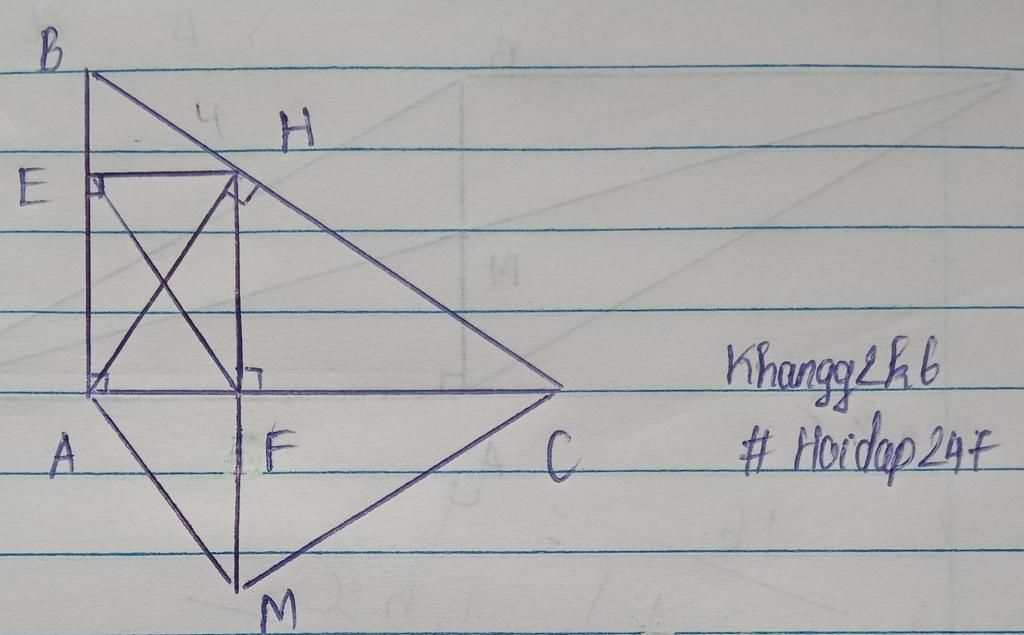 B
H
E
A
F
C
M
Khangg2k6
# Hoidap247